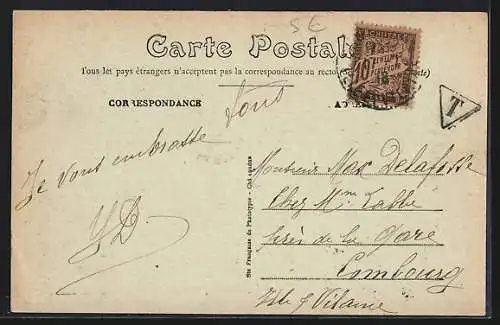 SE
Carte Postale
Tous les pays étrangers n'acceptent pas la correspondance au recto
CORRESPONDANCE
tous
T
Je vous embrasse
YD
Monsieur Max Delafosse
Chez Mme Labbé
près de la gare
Combourg
Ille & Vilaine
Sté Française de Phototypie